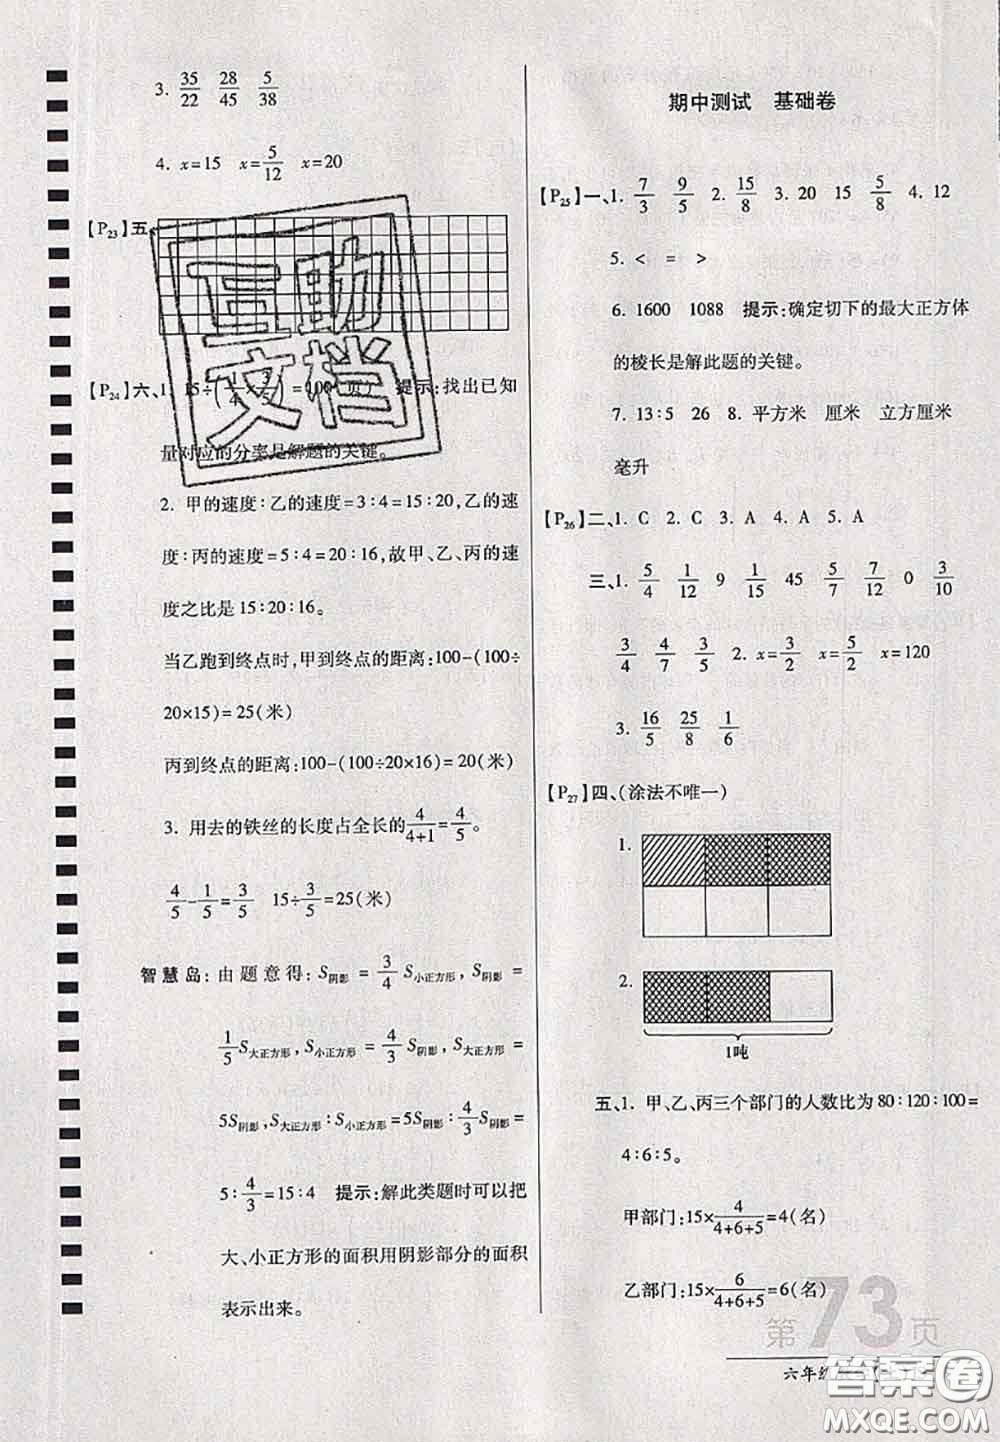 3. 35/22 28/45 5/38
4. x=15 x=5/12 x=20
【P23】五、
【P24】六、1. 15÷(1/4×3/5)=100(页) 提示:找出已知
量对应的分率是解题的关键。
2. 甲的速度:乙的速度=3:4=15:20,乙的速
度:丙的速度=5:4=20:16,故甲、乙、丙的速
度之比是15:20:16。
当乙跑到终点时,甲到终点的距离:100-(100÷
20×15)=25(米)
丙到终点的距离:100-(100÷20×16)=20(米)
3. 用去的铁丝的长度占全长的4/(4+1)=4/5。
4/5-1/5=3/5 15÷3/5=25(米)
智慧岛:由题意得:S阴影=3/4 S小正方形,S阴影=
1/5 S大正方形,S小正方形=4/3 S阴影,S大正方形=
5S阴影,S大正方形:S小正方形=5S阴影:4/3 S阴影=
5:4/3=15:4 提示:解此类题时可以把
大、小正方形的面积用阴影部分的面积
表示出来。
期中测试 基础卷
【P25】一、1. 7/3 9/5 2. 15/8 3. 20 15 5/8 4. 12
5. < = >
6. 1600 1088 提示:确定切下的最大正方体
的棱长是解此题的关键。
7. 13:5 26 8. 平方米 厘米 立方厘米
毫升
【P26】二、1. C 2. C 3. A 4. A 5. A
三、1. 5/4 1/12 9 1/15 45 5/7 7/12 0 3/10
3/4 4/7 3/5 2. x=3/2 x=5/2 x=120
3. 16/5 25/8 1/6
【P27】四、(涂法不唯一)
1.
2.
1吨
五、1. 甲、乙、丙三个部门的人数比为80:120:100=
4:6:5。
甲部门:15×4/(4+6+5)=4(名)
乙部门:15×6/(4+6+5)=6(名)
第73页
六年级
互助
文档
答案圈
MXQE.COM